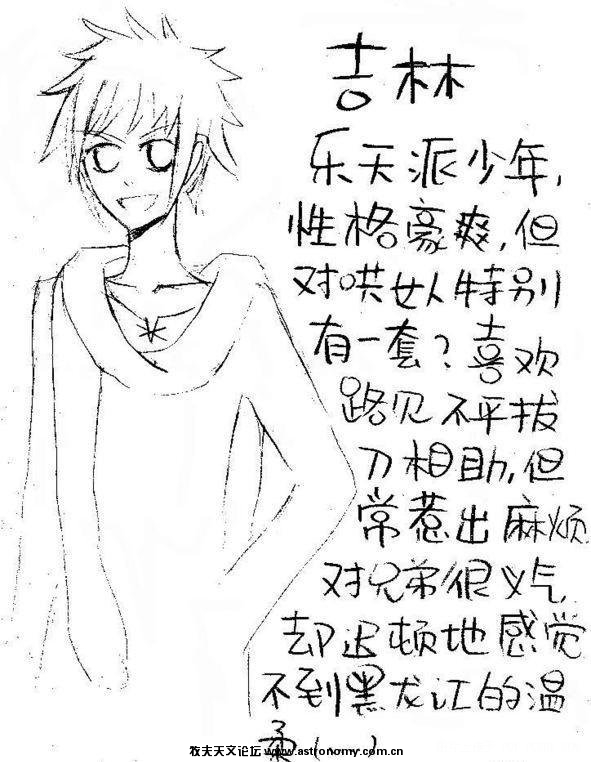 吉林
乐天派少年,
性格豪爽,但
对哄女人特别
有一套?喜欢
路见不平拔
刀相助,但
常惹出麻烦
对兄弟很义气,
却迟顿地感觉
不到黑龙江的温
柔(
牧夫天文论坛 www.astronomy.com.cn